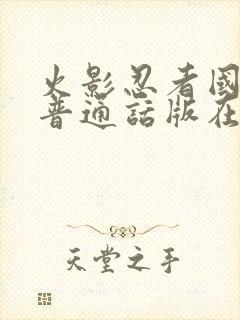 火影忍者國
普通話版在
天堂之手